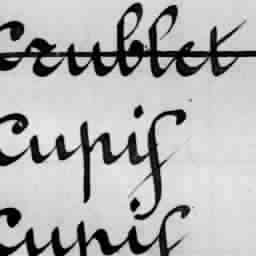 Crublet
Cupis
Cupis